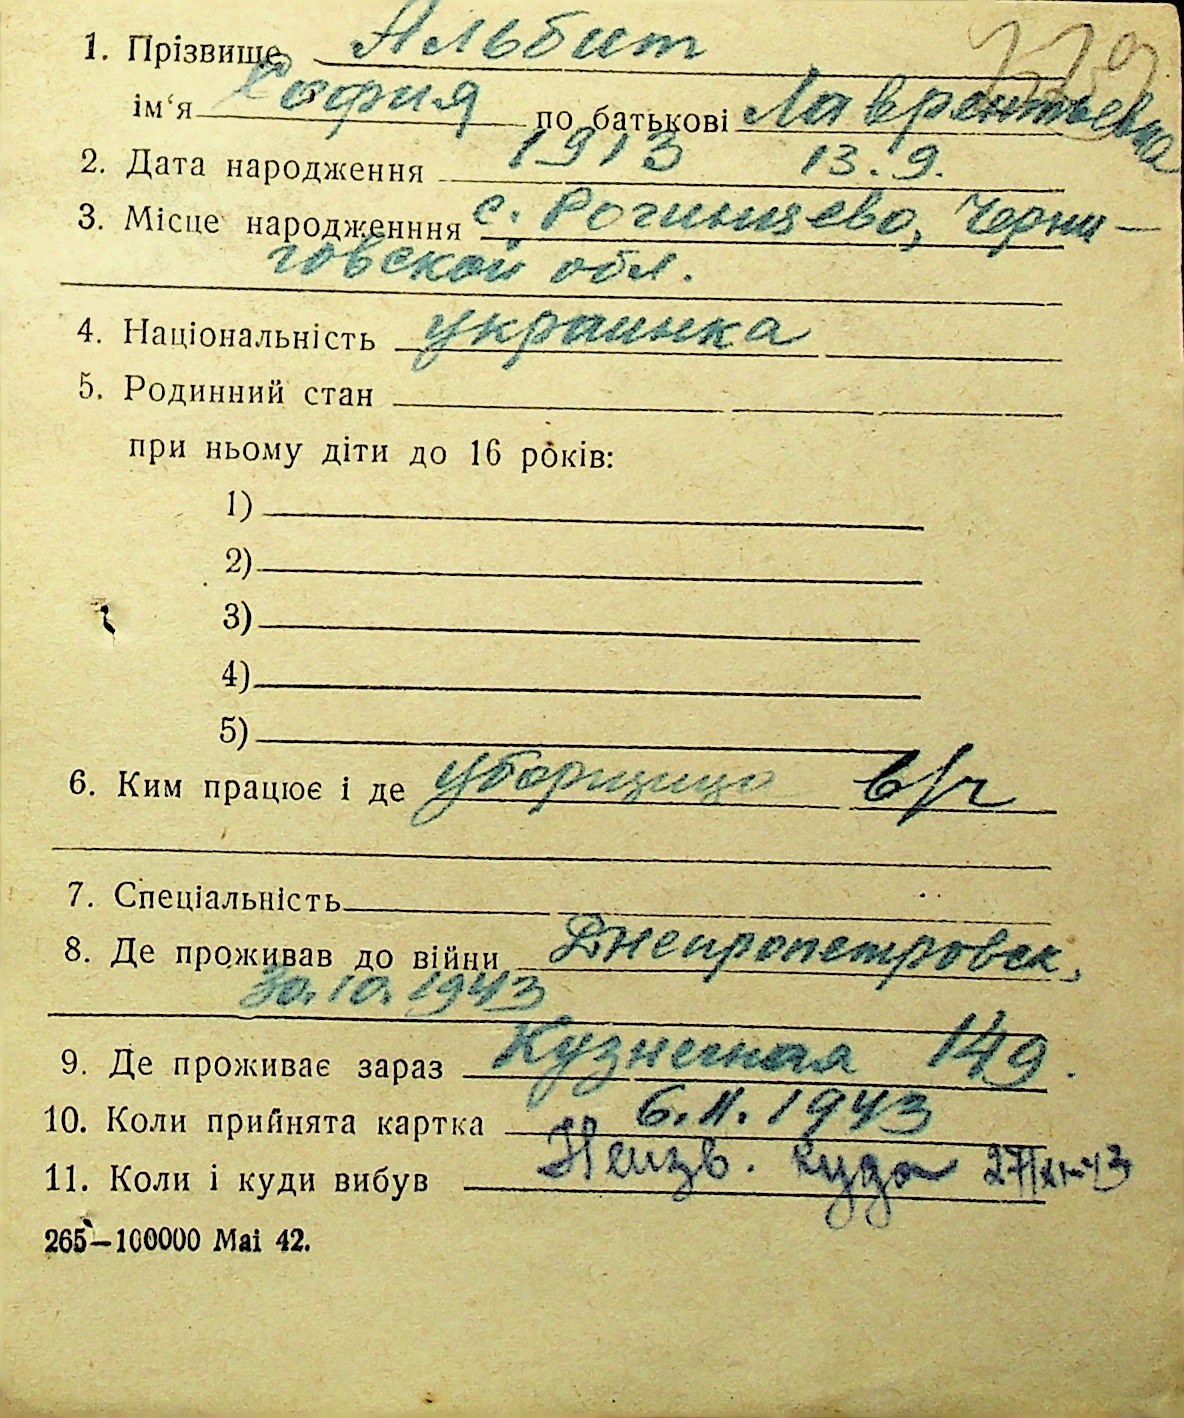 1. Прізвище Альбит
ім‘я София по батькові Лаврентьевна
2. Дата народження 1913 13.9.
3. Місце народженння с. Рогинцево, Черни-
говской обл.
4. Національність украинка
5. Родинний стан
при ньому діти до 16 років:
1)
2)
3)
4)
5)
6. Ким працює і де уборщица в/ч
7. Спеціальність
8. Де проживав до війни Днепропетровск,
30.10.1943
9. Де проживає зараз Кузнечная 149.
10. Коли прийнята картка 6.11.1943
11. Коли і куди вибув Неизв. куда 27/XI-43
265—100000 Mai 42.